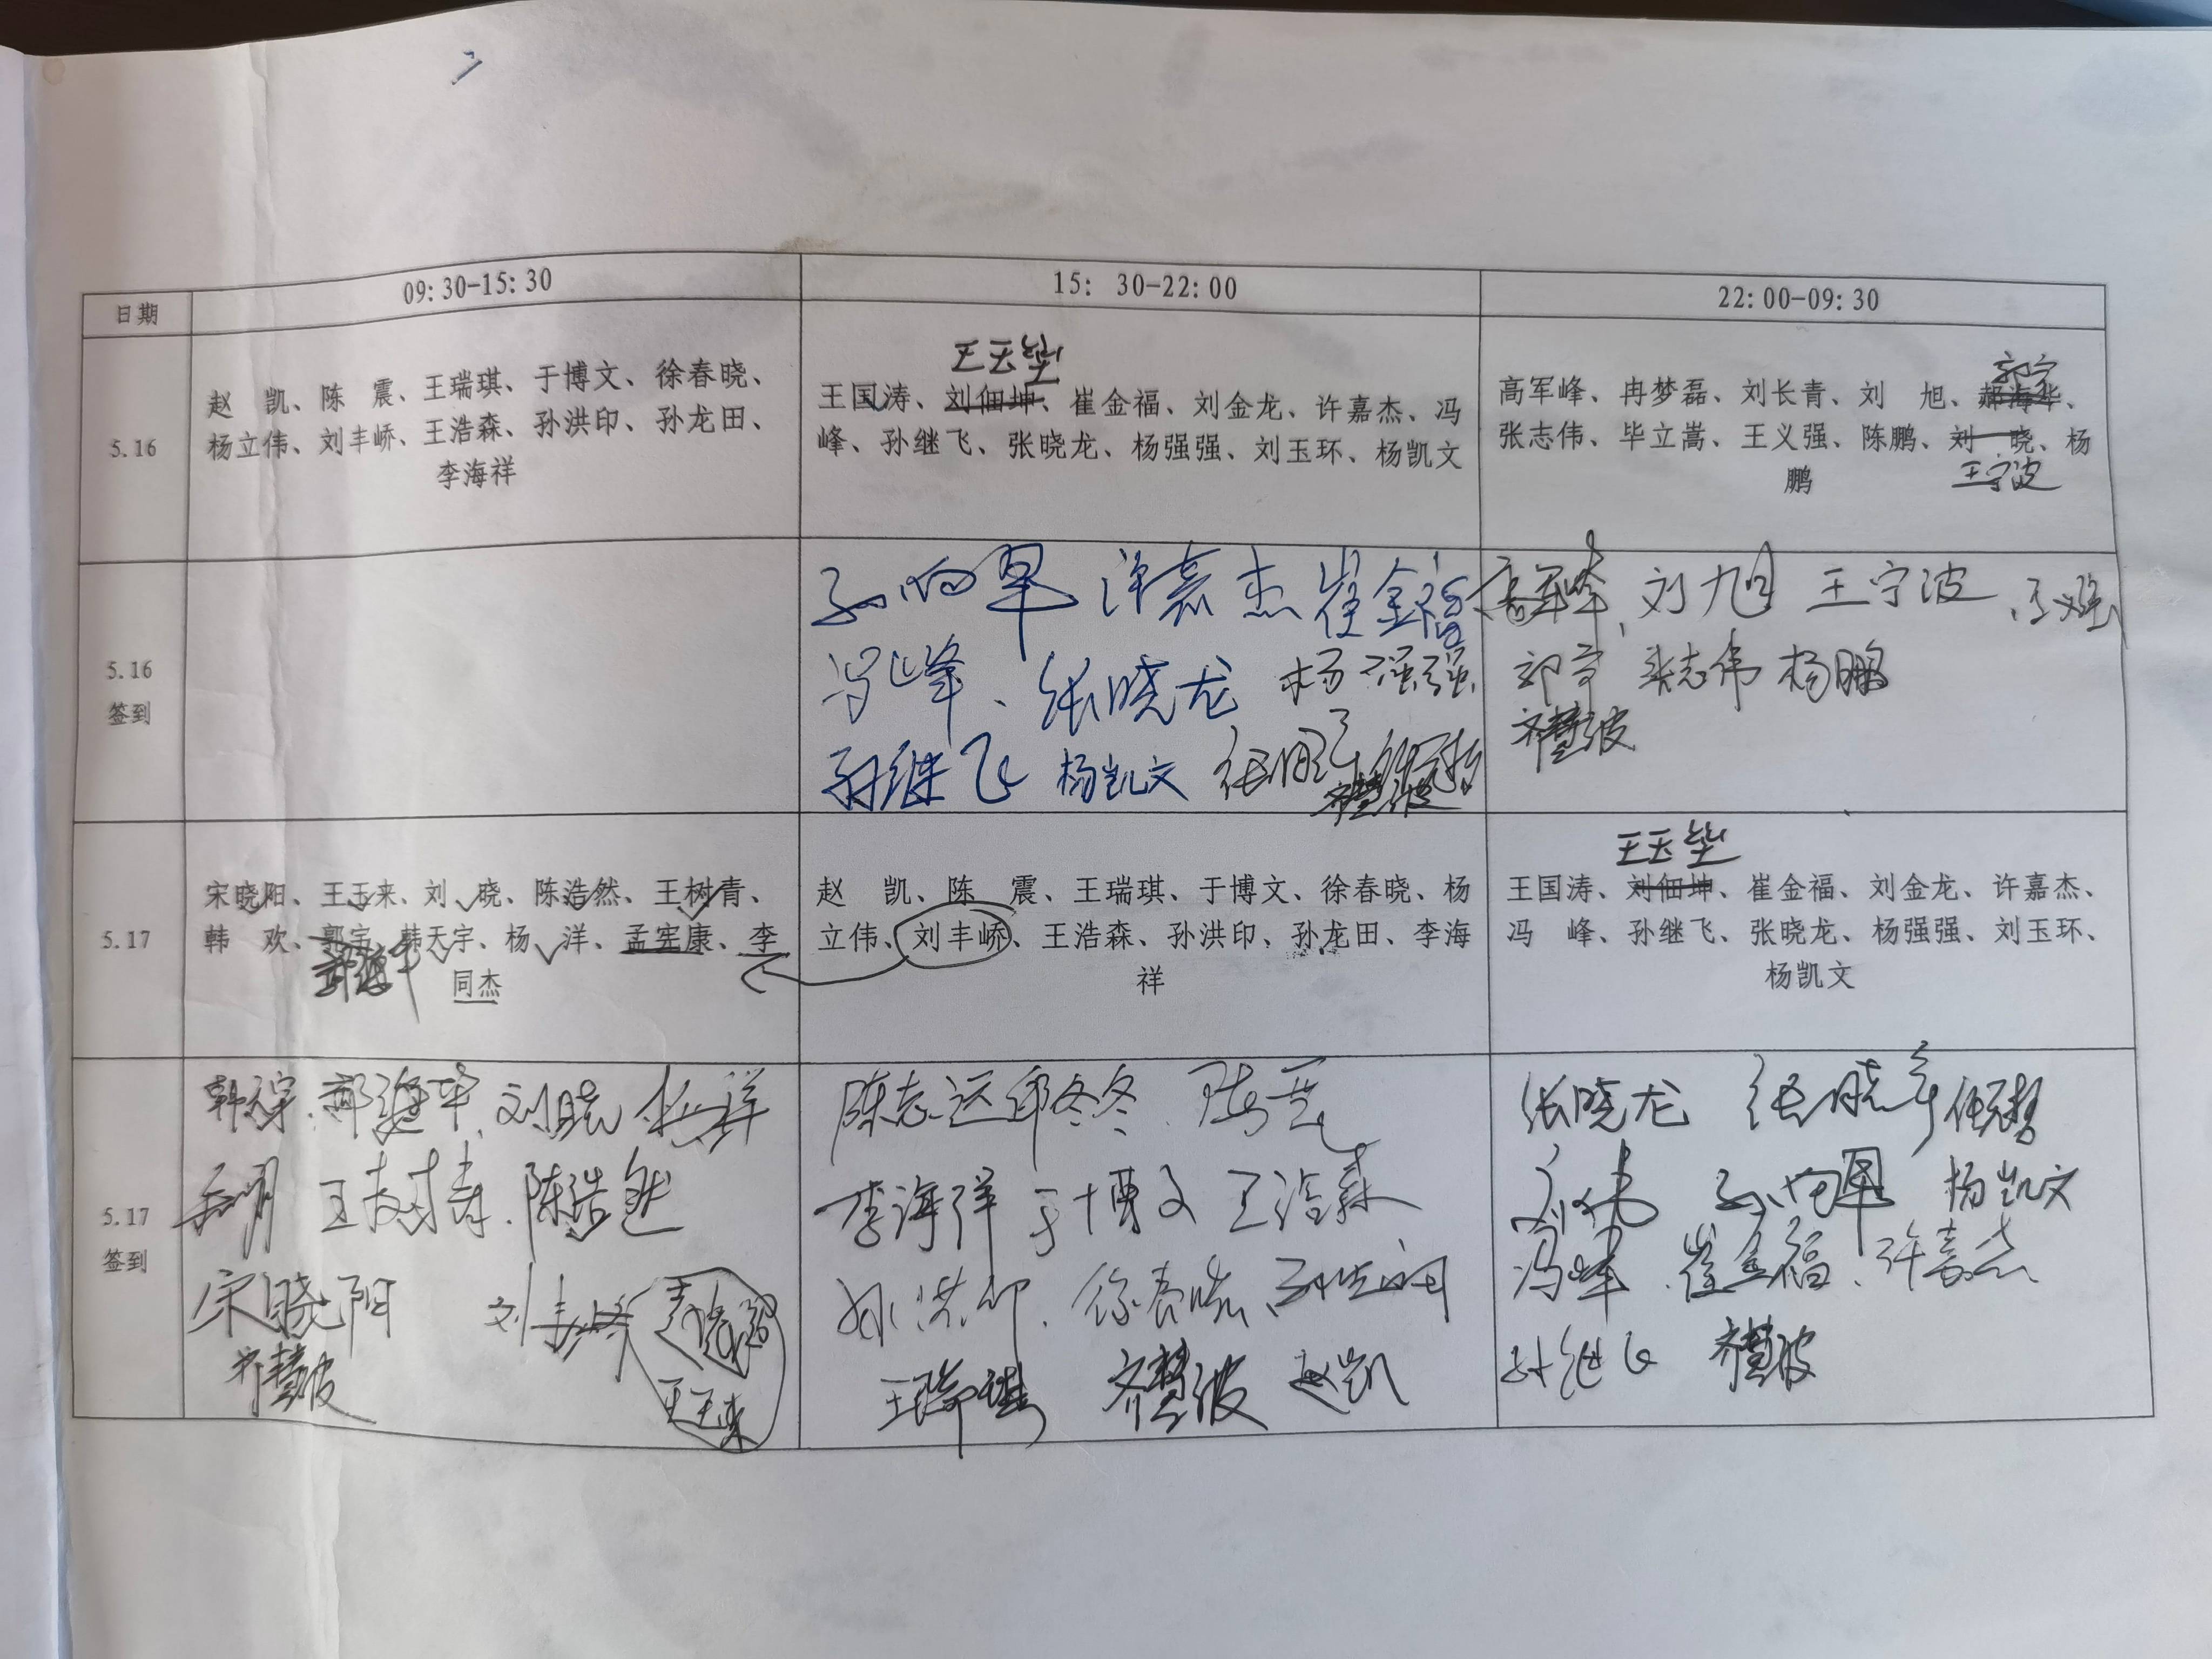 日期
09:30-15:30
15: 30-22:00
22:00-09:30
5.16
赵 凯、陈 震、王瑞琪、于博文、徐春晓、
杨立伟、刘丰峤、王浩森、孙洪印、孙龙田、
李海祥
王玉垒
王国涛、刘佃坤、崔金福、刘金龙、许嘉杰、冯
峰、孙继飞、张晓龙、杨强强、刘玉环、杨凯文
郭宁
高军峰、冉梦磊、刘长青、刘 旭、郝海华、
张志伟、毕立嵩、王义强、陈鹏、刘 晓、杨
鹏
王宁波
5.16
签到
孙向军 许嘉杰 崔金福
冯峰、张晓龙 杨强强
孙继飞 杨凯文
高军峰、刘旭 王宁波、王义强
张志伟 杨鹏
齐慧波
5.17
宋晓阳、王玉来、刘 晓、陈浩然、王树青、
韩 欢、郭宁、韩天宇、杨 洋、孟宪康、李
郝海华
同杰
赵 凯、陈 震、王瑞琪、于博文、徐春晓、杨
立伟、刘丰峤、王浩森、孙洪印、孙龙田、李海
祥
王玉垒
王国涛、刘佃坤、崔金福、刘金龙、许嘉杰、
冯 峰、孙继飞、张晓龙、杨强强、刘玉环、
杨凯文
5.17
签到
韩天宇、郝海华、刘晓
王树青、陈浩然
宋晓阳 刘丰峤
齐慧波 王玉来
陈志远 邱冬冬、陈震
李海祥 于博文 王浩森
孙洪印、徐春晓、
王瑞琪 齐慧波 赵凯
张晓龙
杨凯文
冯峰、崔金福、许嘉杰
孙继飞 齐慧波